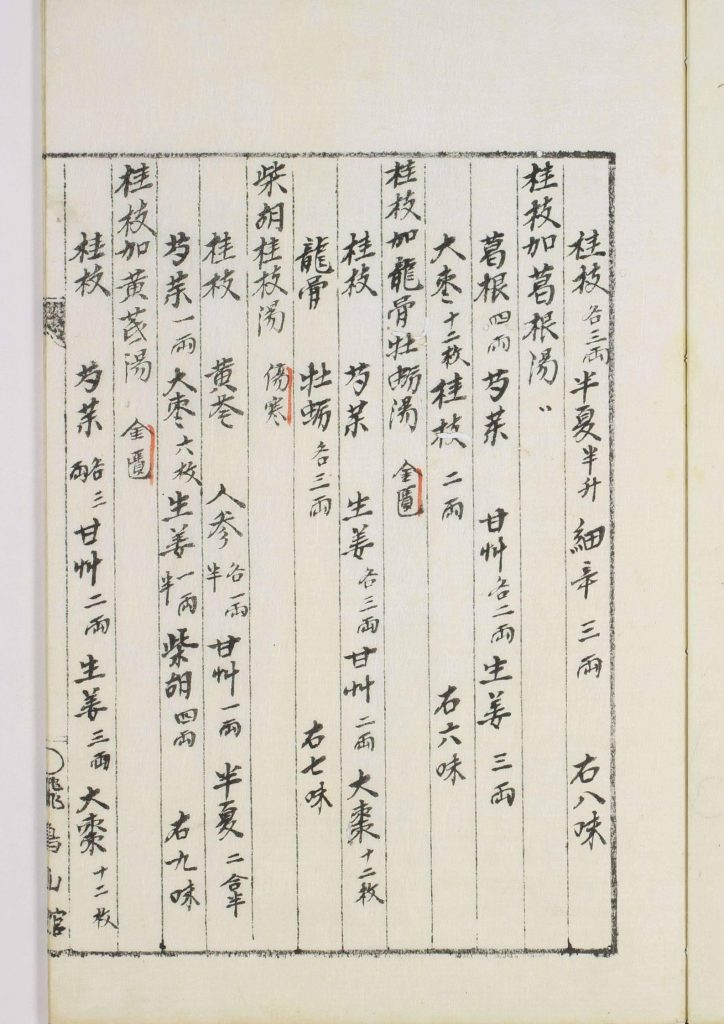 桂枝 各三両 半夏 半升 細辛 三両 右八味
桂枝加葛根湯 〃
葛根 四両 芍薬 甘艸 各二両 生姜 三両
大枣 十二枚 桂枝 二両 右六味
桂枝加龍骨牡蛎湯 金匱
桂枝 芍薬 生姜 各三両 甘艸 二両 大棗 十二枚
龍骨 牡蛎 各三両 右七味
柴胡桂枝湯 傷寒
桂枝 黄芩 人参 各一両半 甘艸 一両 半夏 二合半
芍薬 一両 大枣 六枚 生姜 一両半 柴胡 四両 右九味
桂枝加黄芪湯 金匱
桂枝 芍薬 各三両 甘艸 二両 生姜 三両 大棗 十二枚
山館